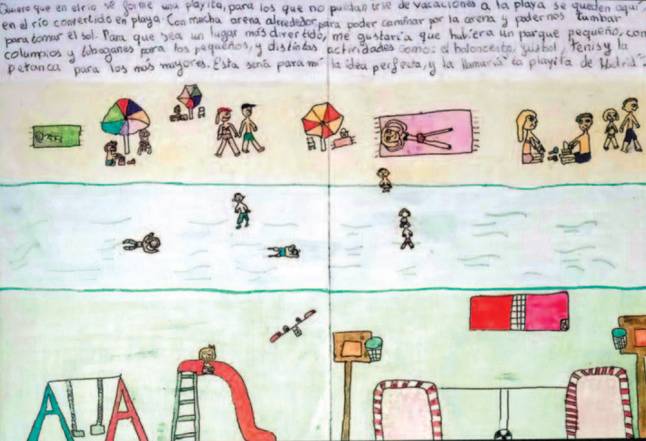 Quiero que en el río se forme una playita, para los que no puedan irse de vacaciones a la playa se queden aquí,
en el río convertido en playa. Con mucha arena alrededor, para poder caminar por la arena y podernos tumbar
para tomar el sol. Para que sea un lugar más divertido, me gustaría que hubiera un parque pequeño, con
columpios y toboganes para los pequeños, y distintas actividades como: el baloncesto, futbol, tenis y la
petanca para los más mayores. Esta sería para mí la idea perfecta, y la llamaría "la playita de Madrid"